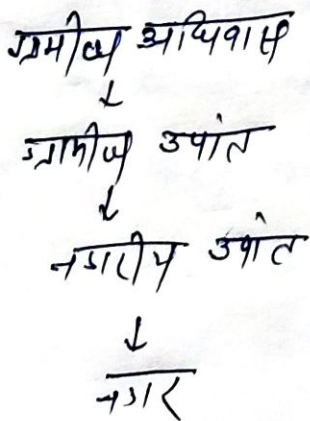 ग्रामीण अधिवास
↓
ग्रामीण उपांत
↓
नगरीय उपांत
↓
नगर